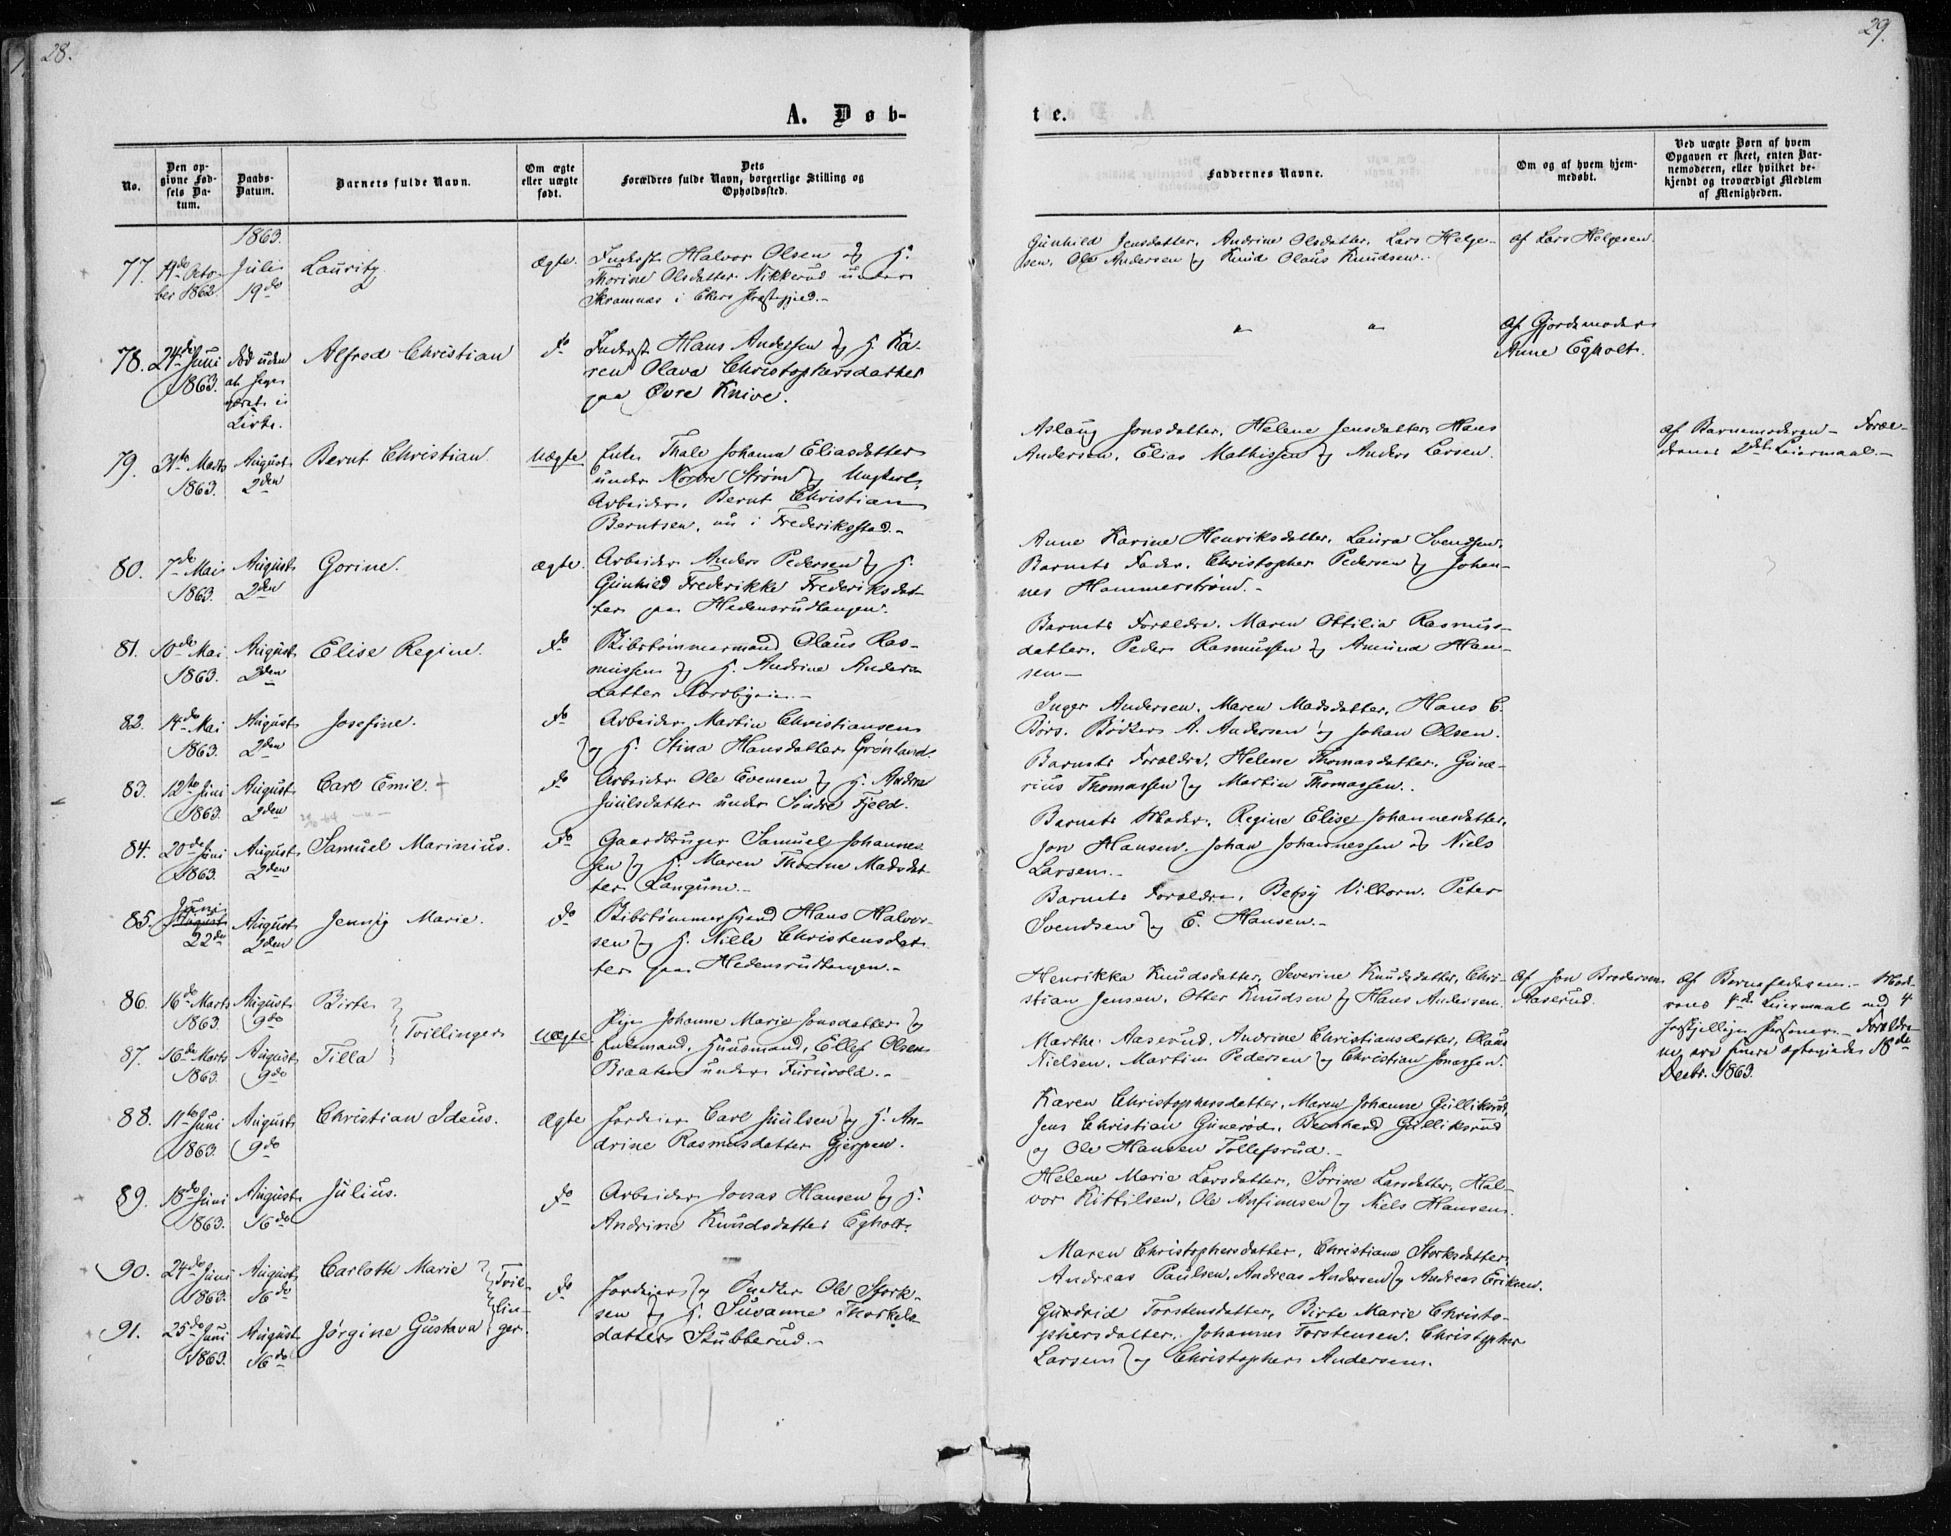 28.
29.
A. Døb-
te.
No.
Den op-
givne Fød-
sels Da-
tum.
Daabs-
Datum.
Barnets fulde Navn.
Om ægte
eller uægte
født.
Dets
Forældres fulde Navn, borgerlige Stilling og
Opholdssted.
Faddernes Navne.
Om og af hvem hjem-
medøbt.
Ved uægte Børn af hvem
Opgaven er skeet, enten Bar-
nemoderen, eller hvilket be-
kjendt og troværdigt Medlem
af Menigheden.
1863.
77.
Octo-
ber 1862
Juli
19de
Lauritz
Ægte.
Inderst Halvor Olsen og H.
Thorine Olsdatter Nikkerud under
Skramnæs i Ekers Præstegjed.-
Gunhild Jensdatter, Andrine Olsdatter, Lars Helge-
sen, Ole Andersen og Knud Olaus Knudsen.
af Lars Helgesen.
78.
24de Juni
1863.
død uden
at have
været i
Kirke.
Alfred Christian
do
Inderst Hans Andersen og H. Ka-
ren Olava Christophersdatter
paa Øvre Knive.
" "
af Gjordemoder
Anne Egholt.
79.
31te Marts
1863.
August
2den
Bernt Christian
Uægte
Enke Thale Johanna Eliasdatter
under Nordre Strøm og Ungkarl,
Arbeider, Bernt Christian
Berntsen, nu i Frederiksstad.-
Aslaug Jonsdatter, Helene Jensdatter, Hans
Andersen, Elias Mathissen og Anders Larsen.
af Barnemoderen - Foræl-
drenes 2det Leiermaal.-
80.
7de Mai
1863.
August
2den
Gorine.
Ægte.
Arbeider Anders Pedersen og H.
Gunhild Frederikke Frederiksdat-
ter paa Hedensrudtangen.
Anne Karine Henriksdatter, Laura Svendsen,
Barnets Fader, Christopher Pedersen og Johan-
nes Hammerstrøm.-
81.
10de Mai
1863.
August
2den
Elise Regine.
do
Skibstømmermand Olaus Ras-
mussen og H. Andrine Anders-
datter Nordbyeie.-
Barnets Forældre, Maren Ottilia Rasmus-
datter, Peder Rasmussen og Amund Han-
sen-
82.
14de Mai
1863.
August
2den
Josefine.
do
Arbeider Martin Christiansen
og H. Stina Hansdatter Grønland.
Inger Andersen, Maren Madsdatter, Hans C.
Børs, Bødker A. Andersen og Johan Olsen.
83.
12te Juni
1863.
August
2den
Carl Emil. +
do
Arbeider Ole Evensen og H. Andrea
Juulsdatter under Søndre Fjeld.
Barnets Forældre, Helene Thomasdatter, Gune-
rius Thomassen og Martin Thomassen.
84.
20de Juni
1863.
August
2den
Samuel Marinius.
do
Gaardbruger Samuel Johannes-
sen og H. Maren Thorine Madsdat-
ter Langum.-
Barnets Moder, Regine Elise Johannesdatter,
Jon Hansen, Johan Johannessen og Niels
Larsen.-
85.
Juni
August
22de
August
2den
Jenny Marie.
do
Skibstømmermand Hans Halvor-
sen og H. Nille Christensdat-
ter paa Hedensrudtangen.-
Barnets Forældre, Betsy Vilborn, Peter
Svendsen og E. Hansen.-
86.
16de Marts
1863.
August
9de
Birte
Tvillinger
Uægte
Pige Johanne Marie Jonsdatter og
Enkemand, Huusmand, Ellef Olsen
Braaten under Furuvold.-
Henrikka Knudsdatter, Severine Knudsdatter, Chri-
stian Jensen, Otter Knudsen og Hans Andersen.
af Jon Brodersen
Aaserud.
af Barnefaderen.- Mod-
rens 4de Leiermaal med 4
forskjellige Personer.- Forældre-
ne ere senere ægteviede 18de
Decbr. 1863.
87.
16de Marts
1863.
August
9de
Tilla
Marthe Aaserud, Andrine Christiansdatter, Olaus
Nielsen, Martin Pedersen og Christian Jonassen.
88.
11te Juni
1863.
August
9de
Christian Ideus.
Ægte
Jordeier Carl Juulsen og H. An-
drine Rasmusdatter Gjerpen.
Karen Christophersdatter, Maren Johanne Gulliksrud,
Jens Christian Gunerød, Bernhard Gulliksrud
og Ole Hansen Tollefsrud.-
89.
18de Juni
1863.
August
16de
Julius.
do
Arbeider Jonas Hansen og H.
Andrine Knudsdatter Egholt.
Helene Marie Larsdatter, Sørine Larsdatter, Hal-
vor Kittilsen, Ole Anfinnsen og Niels Hansen.
90.
24de Juni
1863.
August
16de
Carloth Marie
Tvil-
lin-
ger.
do
Jordeier og Snedker Ole Stork-
sen og H. Susanne Thorkels-
datter Stubberud.-
Maren Christophersdatter, Christiane Storksdatter,
Andreas Paulsen, Andreas Andersen og Andreas Eriksen.
91.
25de Juni
1863.
August
16de
Jørgine Gustava
Gurdrid Torstensdatter, Birte Marie Christo-
phersdatter, Johannes Torstensen, Christopher
Larsen og Christopher Andersen.